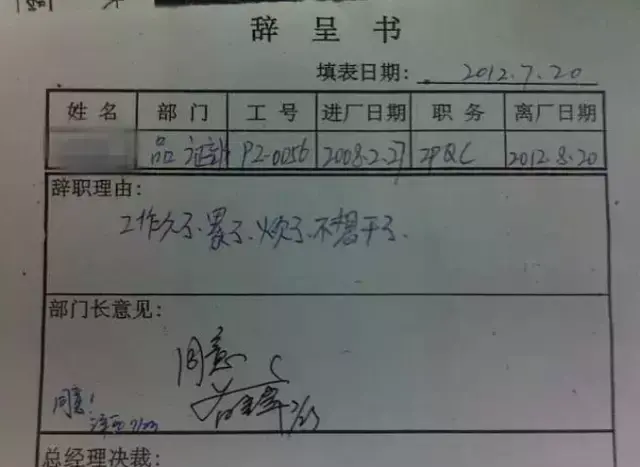 辞呈书
填表日期: 2012.7.20
姓名 部门 工号 进厂日期 职务 离厂日期
品证部 P2-0056 2008.2.27 IPQC 2012.8.20
辞职理由:
工作久了.累了.烦了.不想干了.
部门长意见:
同意
同意!
总经理决裁: